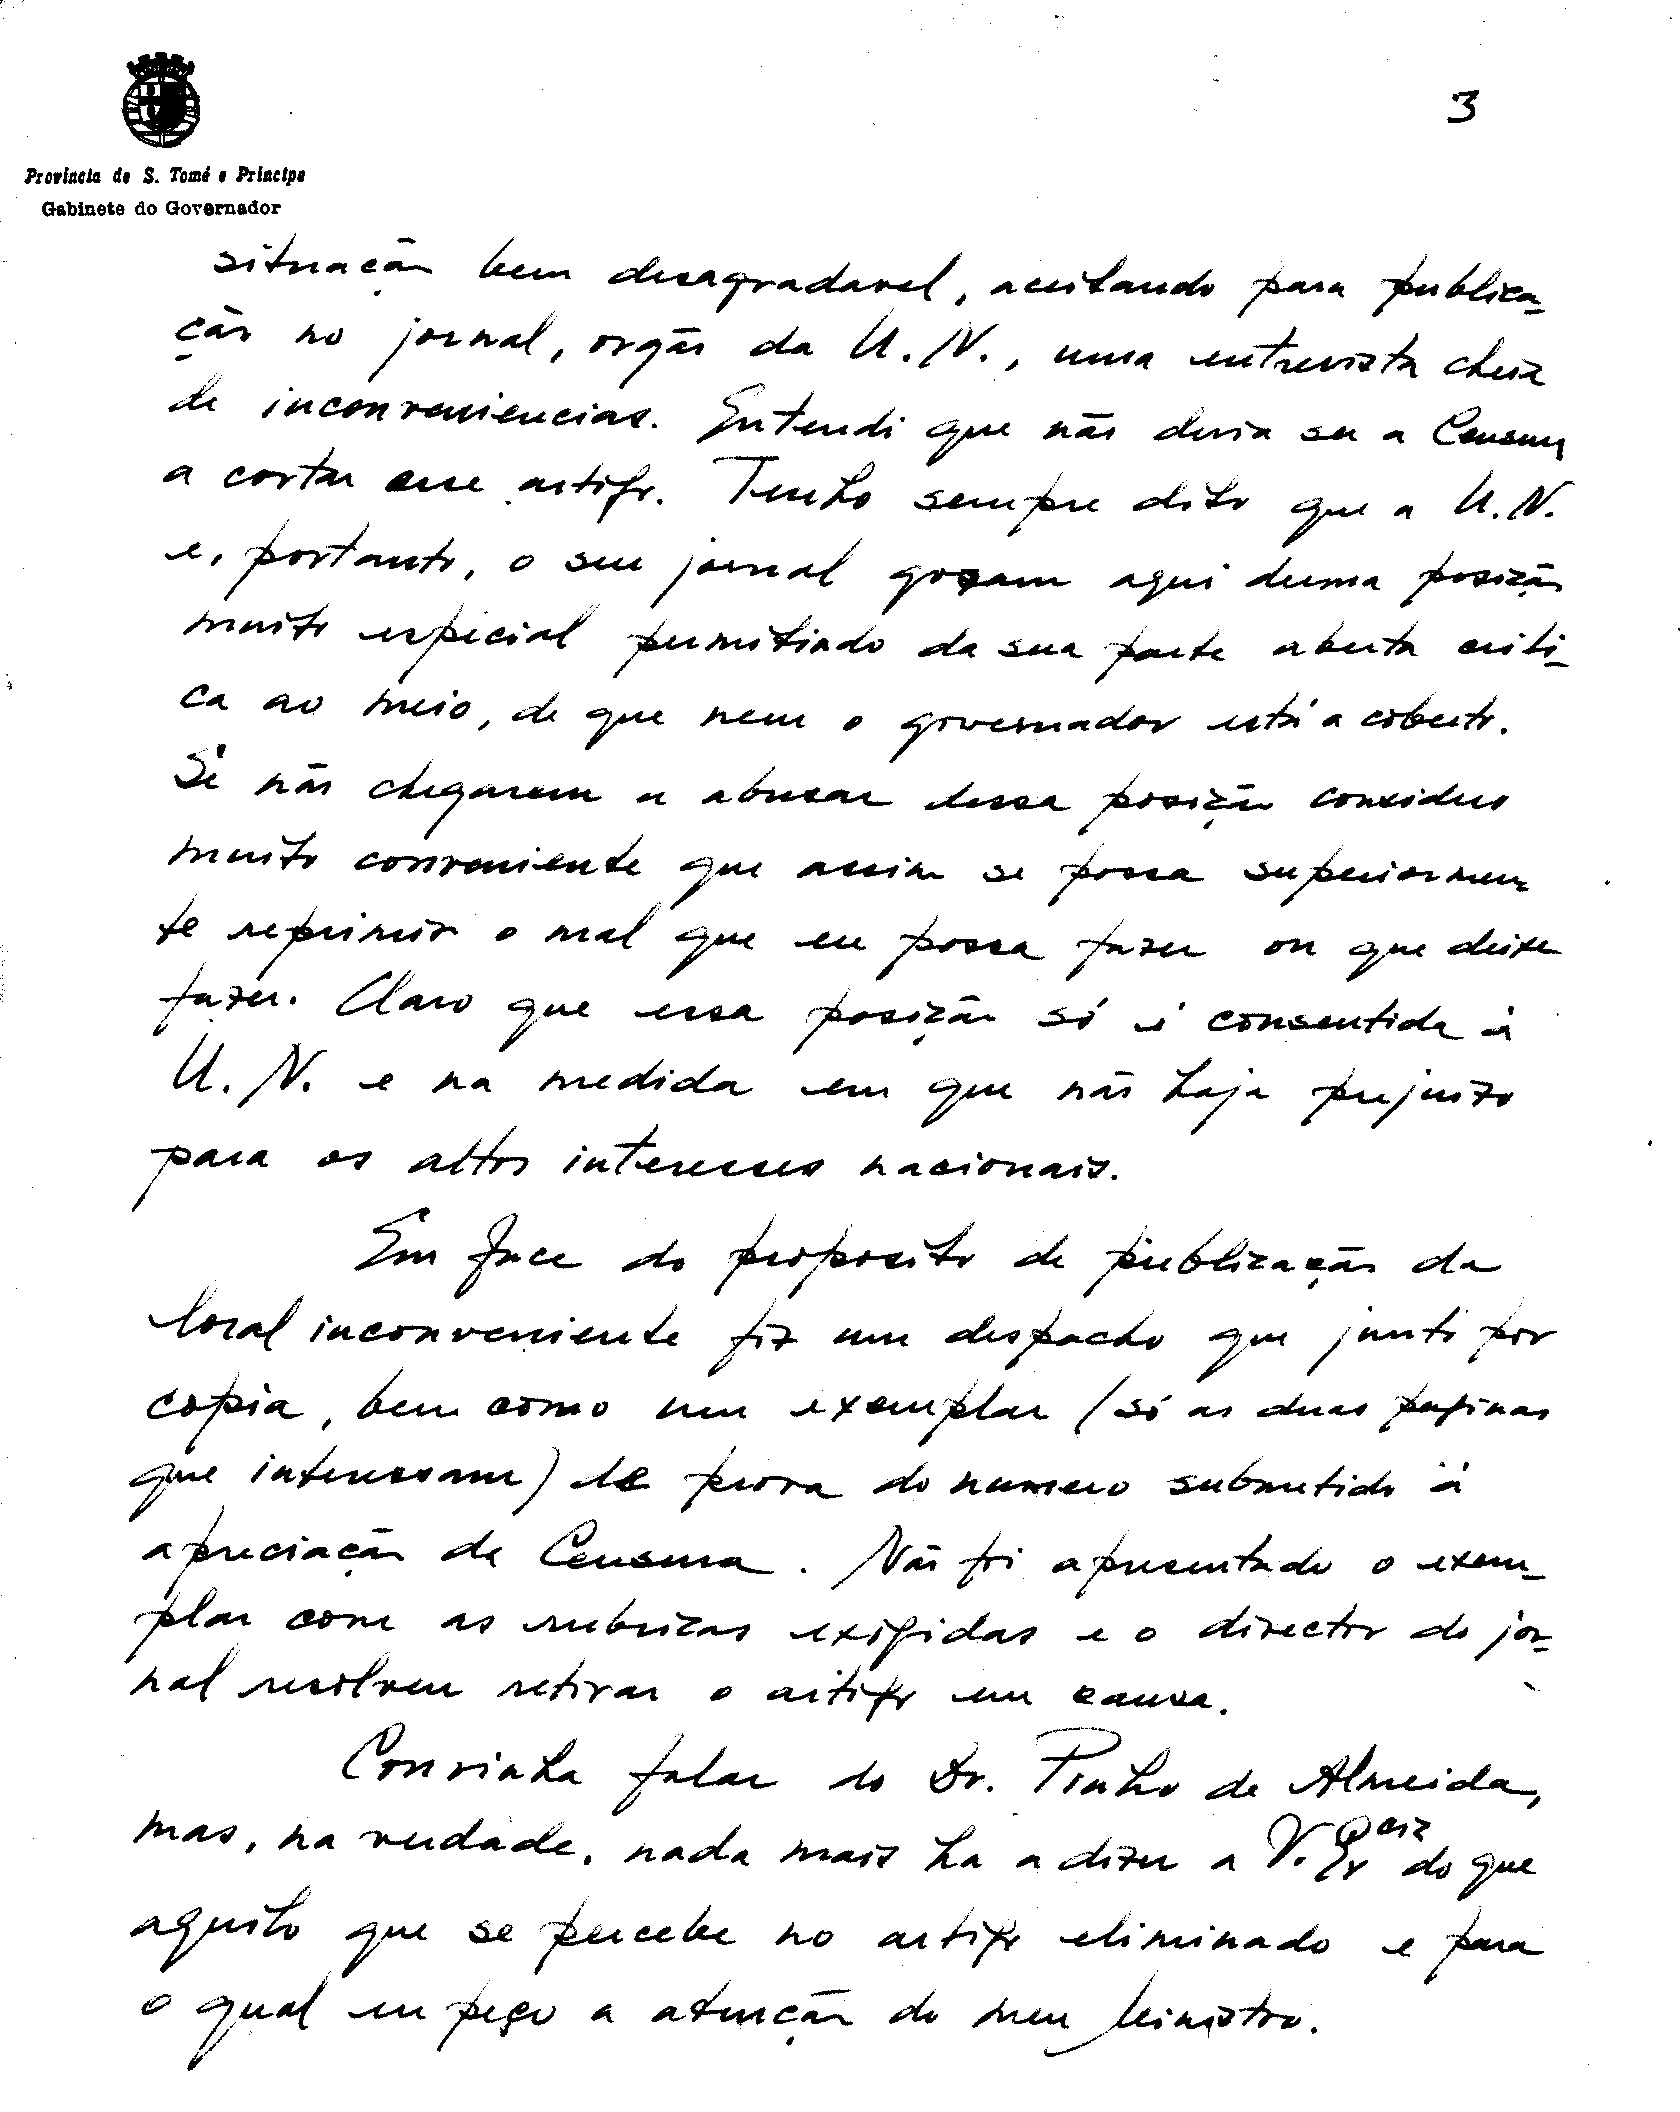 3
Provincia de S. Tomé e Principe
Gabinete do Governador
situação bem desagradavel, aceitando para publica-
ção no jornal, orgão da U.N., uma entrevista cheia
de inconveniencias. Entendi que não devia ser a Censura
a cortar esse artigo. Tenho sempre dito que a U.N.
e, portanto, o seu jornal gozam aqui duma posição
muito especial permitindo da sua parte aberta criti-
ca ao meio, de que nem o governador está a coberto.
Se não chegarem a abusar dessa posição considero
muito conveniente que assim se possa superiormen-
te reprimir o mal que eu possa fazer ou que deixe
fazer. Claro que essa posição só é consentida á
U.N. e na medida em que não haja prejuizo
para os altos interesses nacionais.
Em face do proposito de publicação da
local inconveniente fiz um despacho que junto por
copia, bem como um exemplar (só as duas paginas
que interessam) de prova do numero submetido á
apreciação da Censura. Não foi apresentado o exem-
plar com as rubricas exigidas e o director do jor-
nal resolveu retirar o artigo em causa.
Convinha falar do Dr. Pinho de Almeida,
mas, na verdade, nada mais ha a dizer a V. Excia do que
aquilo que se percebe no artigo eliminado e para
o qual eu peço a atenção do meu Ministro.